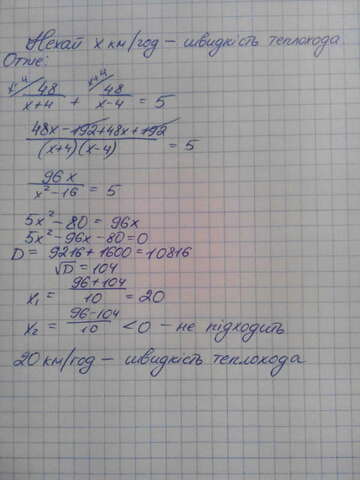 Нехай x км/год – швидкість теплохода
Отже:
x-4/ 48/(x+4) + x+4/ 48/(x-4) = 5
(48x-192+48x+192)/((x+4)(x-4)) = 5
96x/(x²-16) = 5
5x²-80 = 96x
5x²-96x-80=0
D = 9216+1600=10816
√D = 104
x₁ = (96+104)/10 = 20
x₂ = (96-104)/10 <0 – не підходить
20 км/год – швидкість теплохода